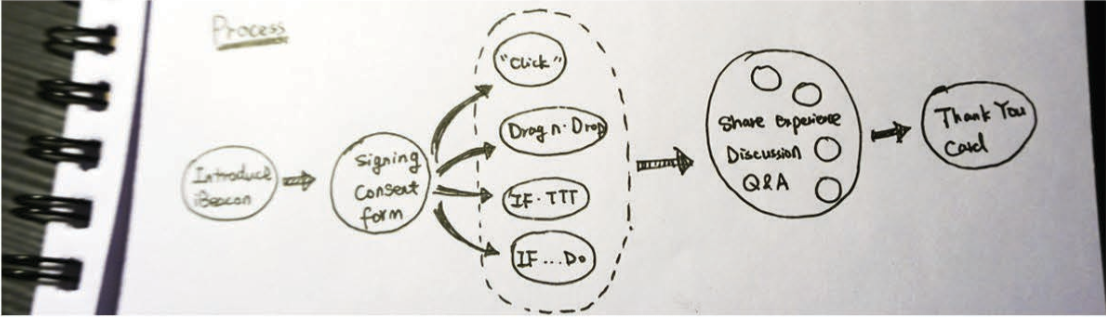 Process
Introduce
iBeacon
Signing
Consent
form
"Click"
Drag n. Drop
IF. TTT
IF...Do
Share Experience
Discussion
Q&A
Thank You
Card